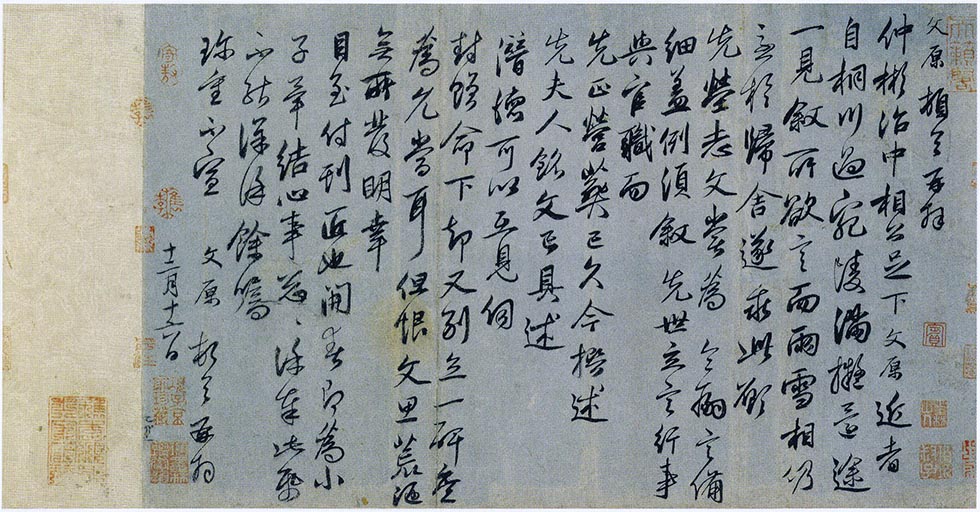 文原頓首再拜
仲彬治中相公足下文原近者
自桐川過宛陵滿擬 途
一見敘所欲言而雨雪相仍
亟於歸舍遂乖此願
先塋志文嘗為 令嗣言備
細蓋例須敘 先世立言行事
與官職而
先正營葬已久今 述
先夫人銘文 具述
潛德可以互見伺
封贈命下却又別立一碑
為允當耳但恨文思荒陋
無所發明幸
目至付刊匠也開春即為小
子畢結心事忽忽 奉此
不能詳 餘
珍重不宣
文原頓首再拜
十二月十 日